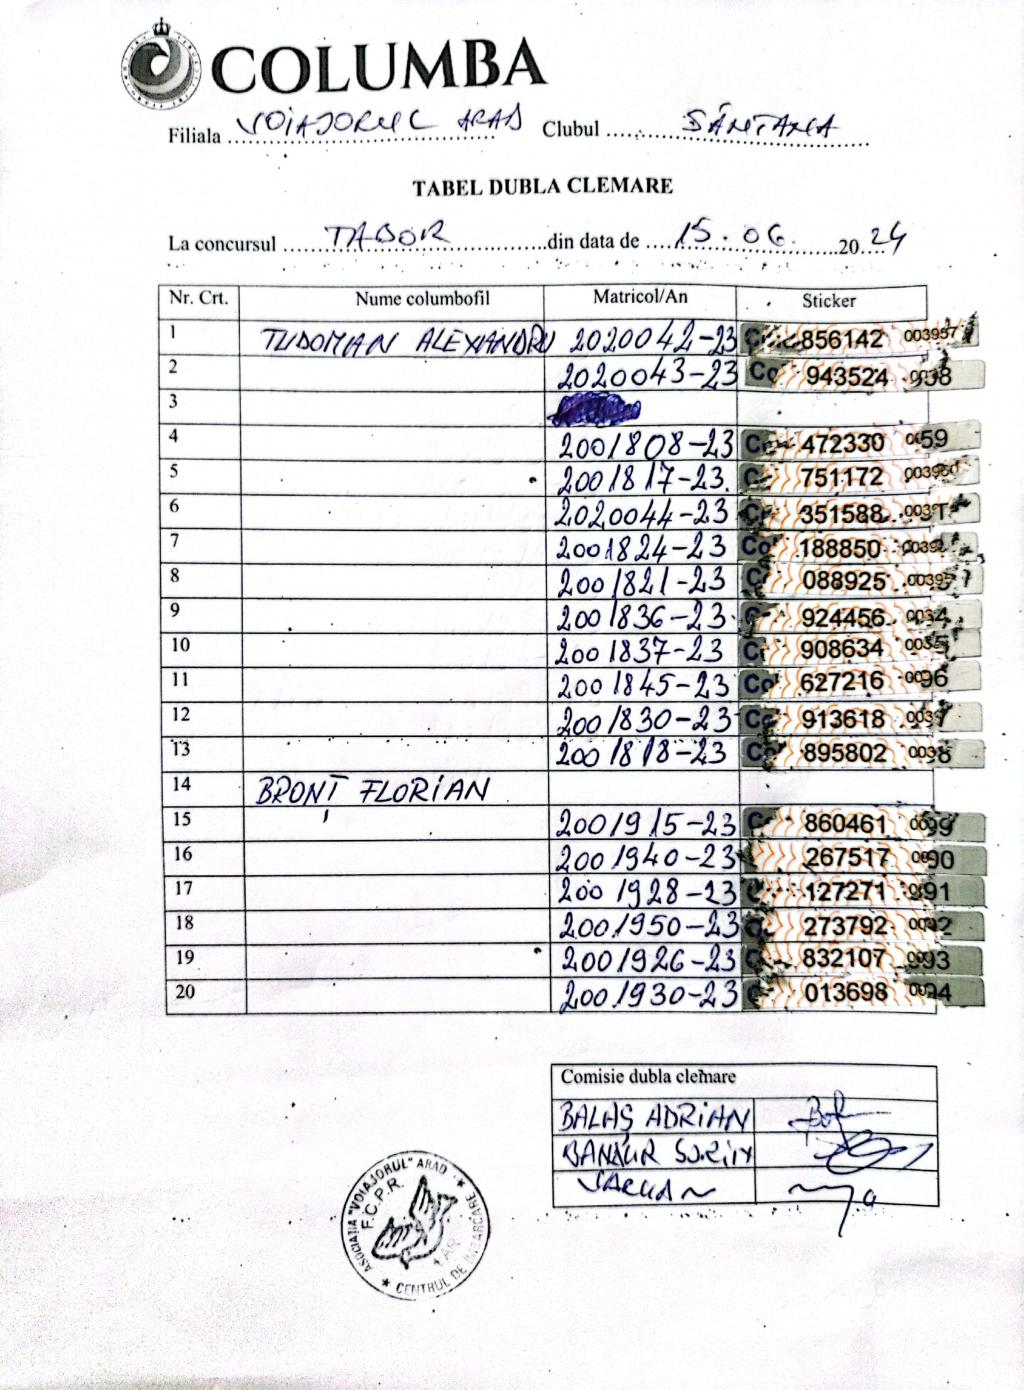 COLUMBA
Filiala VOIAJORUL ARAD Clubul SÂNTANA
TABEL DUBLA CLEMARE
La concursul TABOR din data de 15.06. 2024
Nr. Crt. Nume columbofil Matricol/An Sticker
1 TUDOMAN ALEXANDRU 2020042-23 856142 003957
2 2020043-23 Co 943524
3
4 2001808-23 472330
5 2001817-23. 751172
6 2020044-23 351588
7 2001824-23 Co 188850
8 2001821-23 088925
9 2001836-23 924456
10 2001837-23 908634
11 2001845-23 Co 627216
12 2001830-23 Co 913618
13 2001818-23 Co 895802
14 BRONȚ FLORIAN
15 2001915-23 860461
16 2001940-23 267517
17 2001928-23 127271
18 2001950-23 273792
19 2001926-23 832107
20 2001930-23 013698
Comisie dubla clemare
BALAȘ ADRIAN
BANDUR SORIN
ASOCIAȚIA "VOIAJORUL" ARAD
F.C.P.R.
1 AR
CENTRUL DE ÎMBARCARE